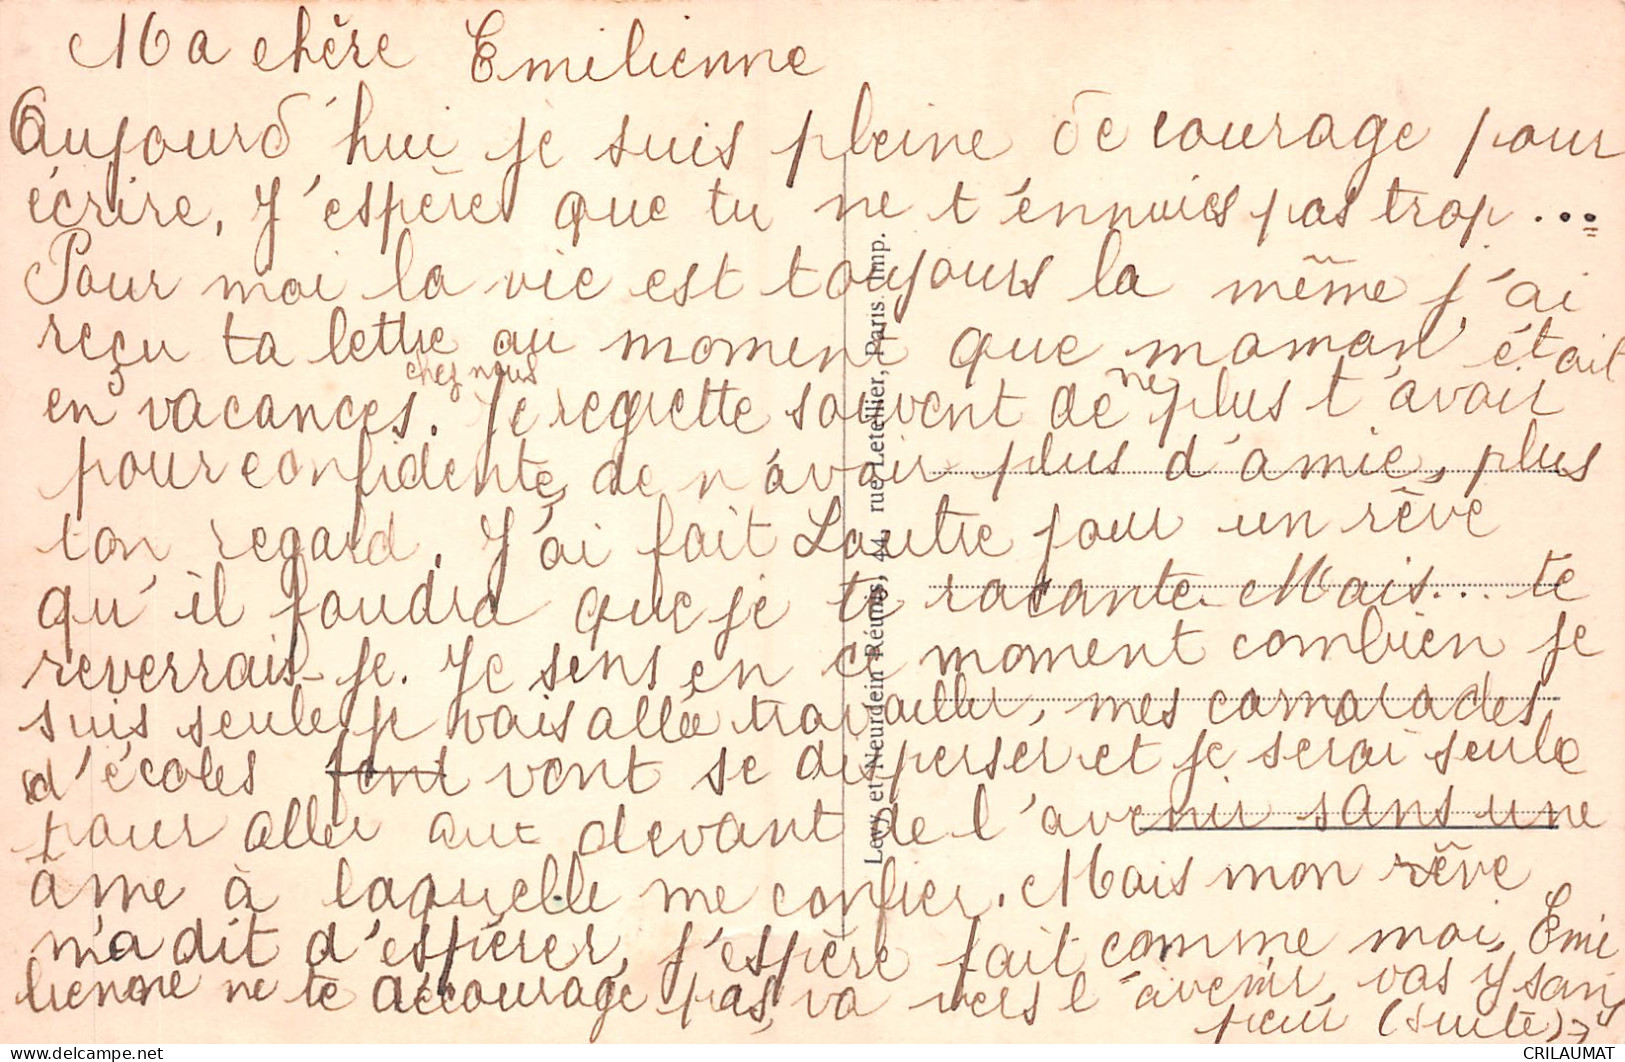 Ma chère Emilienne
Aujourd'hui je suis pleine de courage pour
écrire, J'espère que tu ne t'ennuies pas trop...
Pour moi la vie est toujours la même j'ai
reçu ta lettre au moment que maman était
chez nous
en vacances. Je regrette souvent de ne plus t'avoir
pour confidente, de n'avoir plus d'amie, plus
ton regard. J'ai fait L'autre jour un rêve
qu'il faudra que je te racante. Mais... te
reverrais-je. Je sens en ce moment combien je
suis seule je vais allée travailler, mes camarades
d'écoles font vont se disperser et je serai seule
pour aller au devant de l'avenir sans une
âme à laquelle me confier. Mais mon rêve
m'a dit d'espérer, j'espère fait comme moi, Emi
lienne ne te décourage pas, va vers l'avenir, vas y sans
peur (suite)→
Levy et Neurdein Réunis, 44, rue Letellier, Paris. Imp.
CRILAUMAT